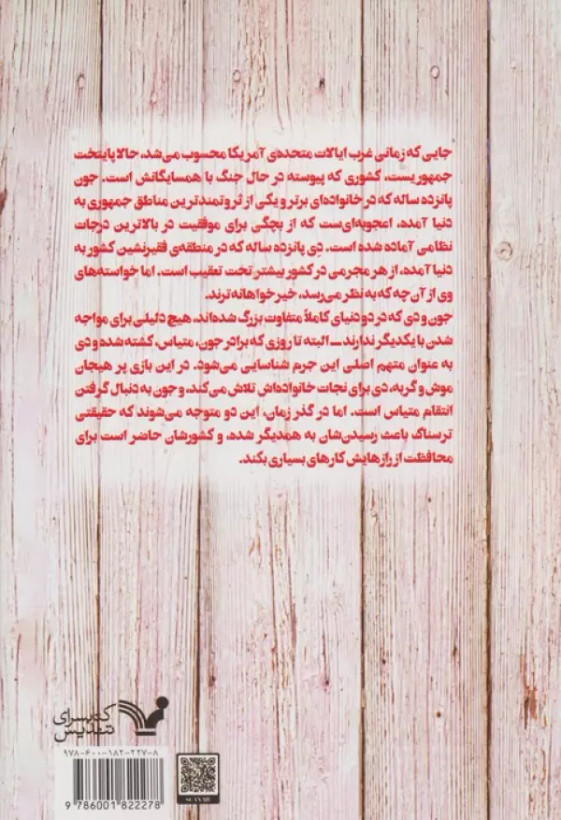 جایی که زمانی غرب ایالات متحده‌ی آمریکا محسوب می‌شد، حالا پایتخت
جمهوریست، کشوری که پیوسته در حال جنگ با همسایگانش است. جون
پانزده ساله که در خانواده‌ای برتر و یکی از ثروتمندترین مناطق جمهوری به
دنیا آمده، اعجوبه‌ای‌ست که از بچگی برای موفقیت در بالاترین درجات
نظامی آماده شده است. دِی پانزده ساله که در منطقه‌ی فقیرنشین کشور به
دنیا آمده، از هر مجرمی در کشور بیشتر تحت تعقیب است. اما خواسته‌های
وی از آن چه که به نظر می‌رسد، خیرخواهانه‌ترند.
جون و دی که در دو دنیای کاملاً متفاوت بزرگ شده‌اند، هیچ دلیلی برای مواجه
شدن با یکدیگر ندارند ــ البته تا روزی که برادر جون، متیاس، کشته شده و دی
به عنوان متهم اصلی این جرم شناسایی می‌شود. در این بازی پر هیجان
موش و گربه، دی برای نجات خانواده‌اش تلاش می‌کند، و جون به دنبال گرفتن
انتقام متیاس است. اما در گذر زمان، این دو متوجه می‌شوند که حقیقتی
ترسناک باعث رسیدن‌شان به همدیگر شده، و کشورشان حاضر است برای
محافظت از رازهایش کارهای بسیاری بکند.
کتابسرای
تندیس
۹۷۸-۶۰۰-۱۸۲-۲۲۷-۸
9 786001 822278